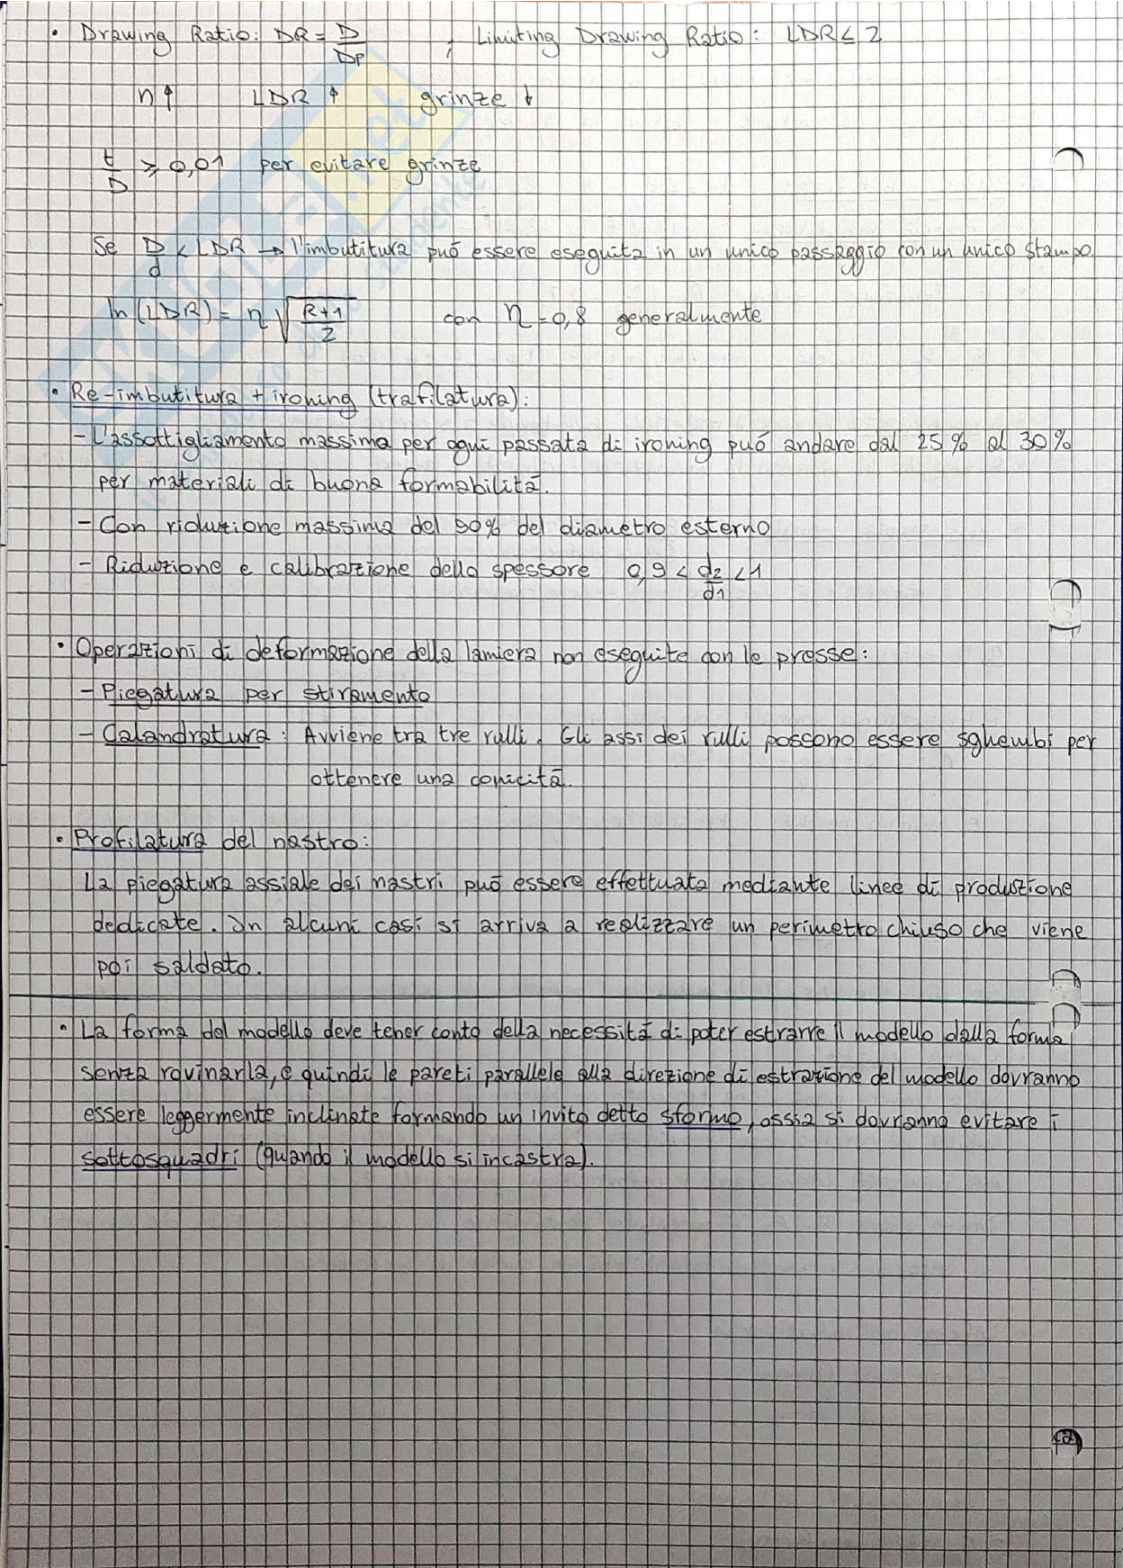 • Drawing Ratio: DR = D/Dp ; Limiting Drawing Ratio: LDR < 2
n↑ LDR ↑ grinze ↓
t/D ≥ 0,01 per evitare grinze
Se D/d < LDR → l'imbutitura può essere eseguita in un unico passaggio con un unico stampo
ln(LDR) = η √((R+1)/2) con η = 0,8 generalmente
• Re-imbutitura + ironing (trafilatura):
- L'assottigliamento massimo per ogni passata di ironing può andare dal 25% al 30%
per materiali di buona formabilità.
- Con riduzione massima del 50% del diametro esterno
- Riduzione e calibrazione dello spessore 0,9 < d2/d1 < 1
• Operazioni di deformazione della lamiera non eseguite con le presse:
- Piegatura per stiramento
- Calandratura: Avviene tra tre rulli. Gli assi dei rulli possono essere sghembi per
ottenere una conicità.
• Profilatura del nastro:
La piegatura assiale dei nastri può essere effettuata mediante linee di produzione
dedicate. In alcuni casi si arriva a realizzare un perimetro chiuso che viene
poi saldato.
• La forma del modello deve tener conto della necessità di poter estrarre il modello dalla forma
senza rovinarla, e quindi le pareti parallele alla direzione di estrazione del modello dovranno
essere leggermente inclinate formando un invito detto sformo, ossia si dovranno evitare i
sottosquadri (quando il modello si incastra).